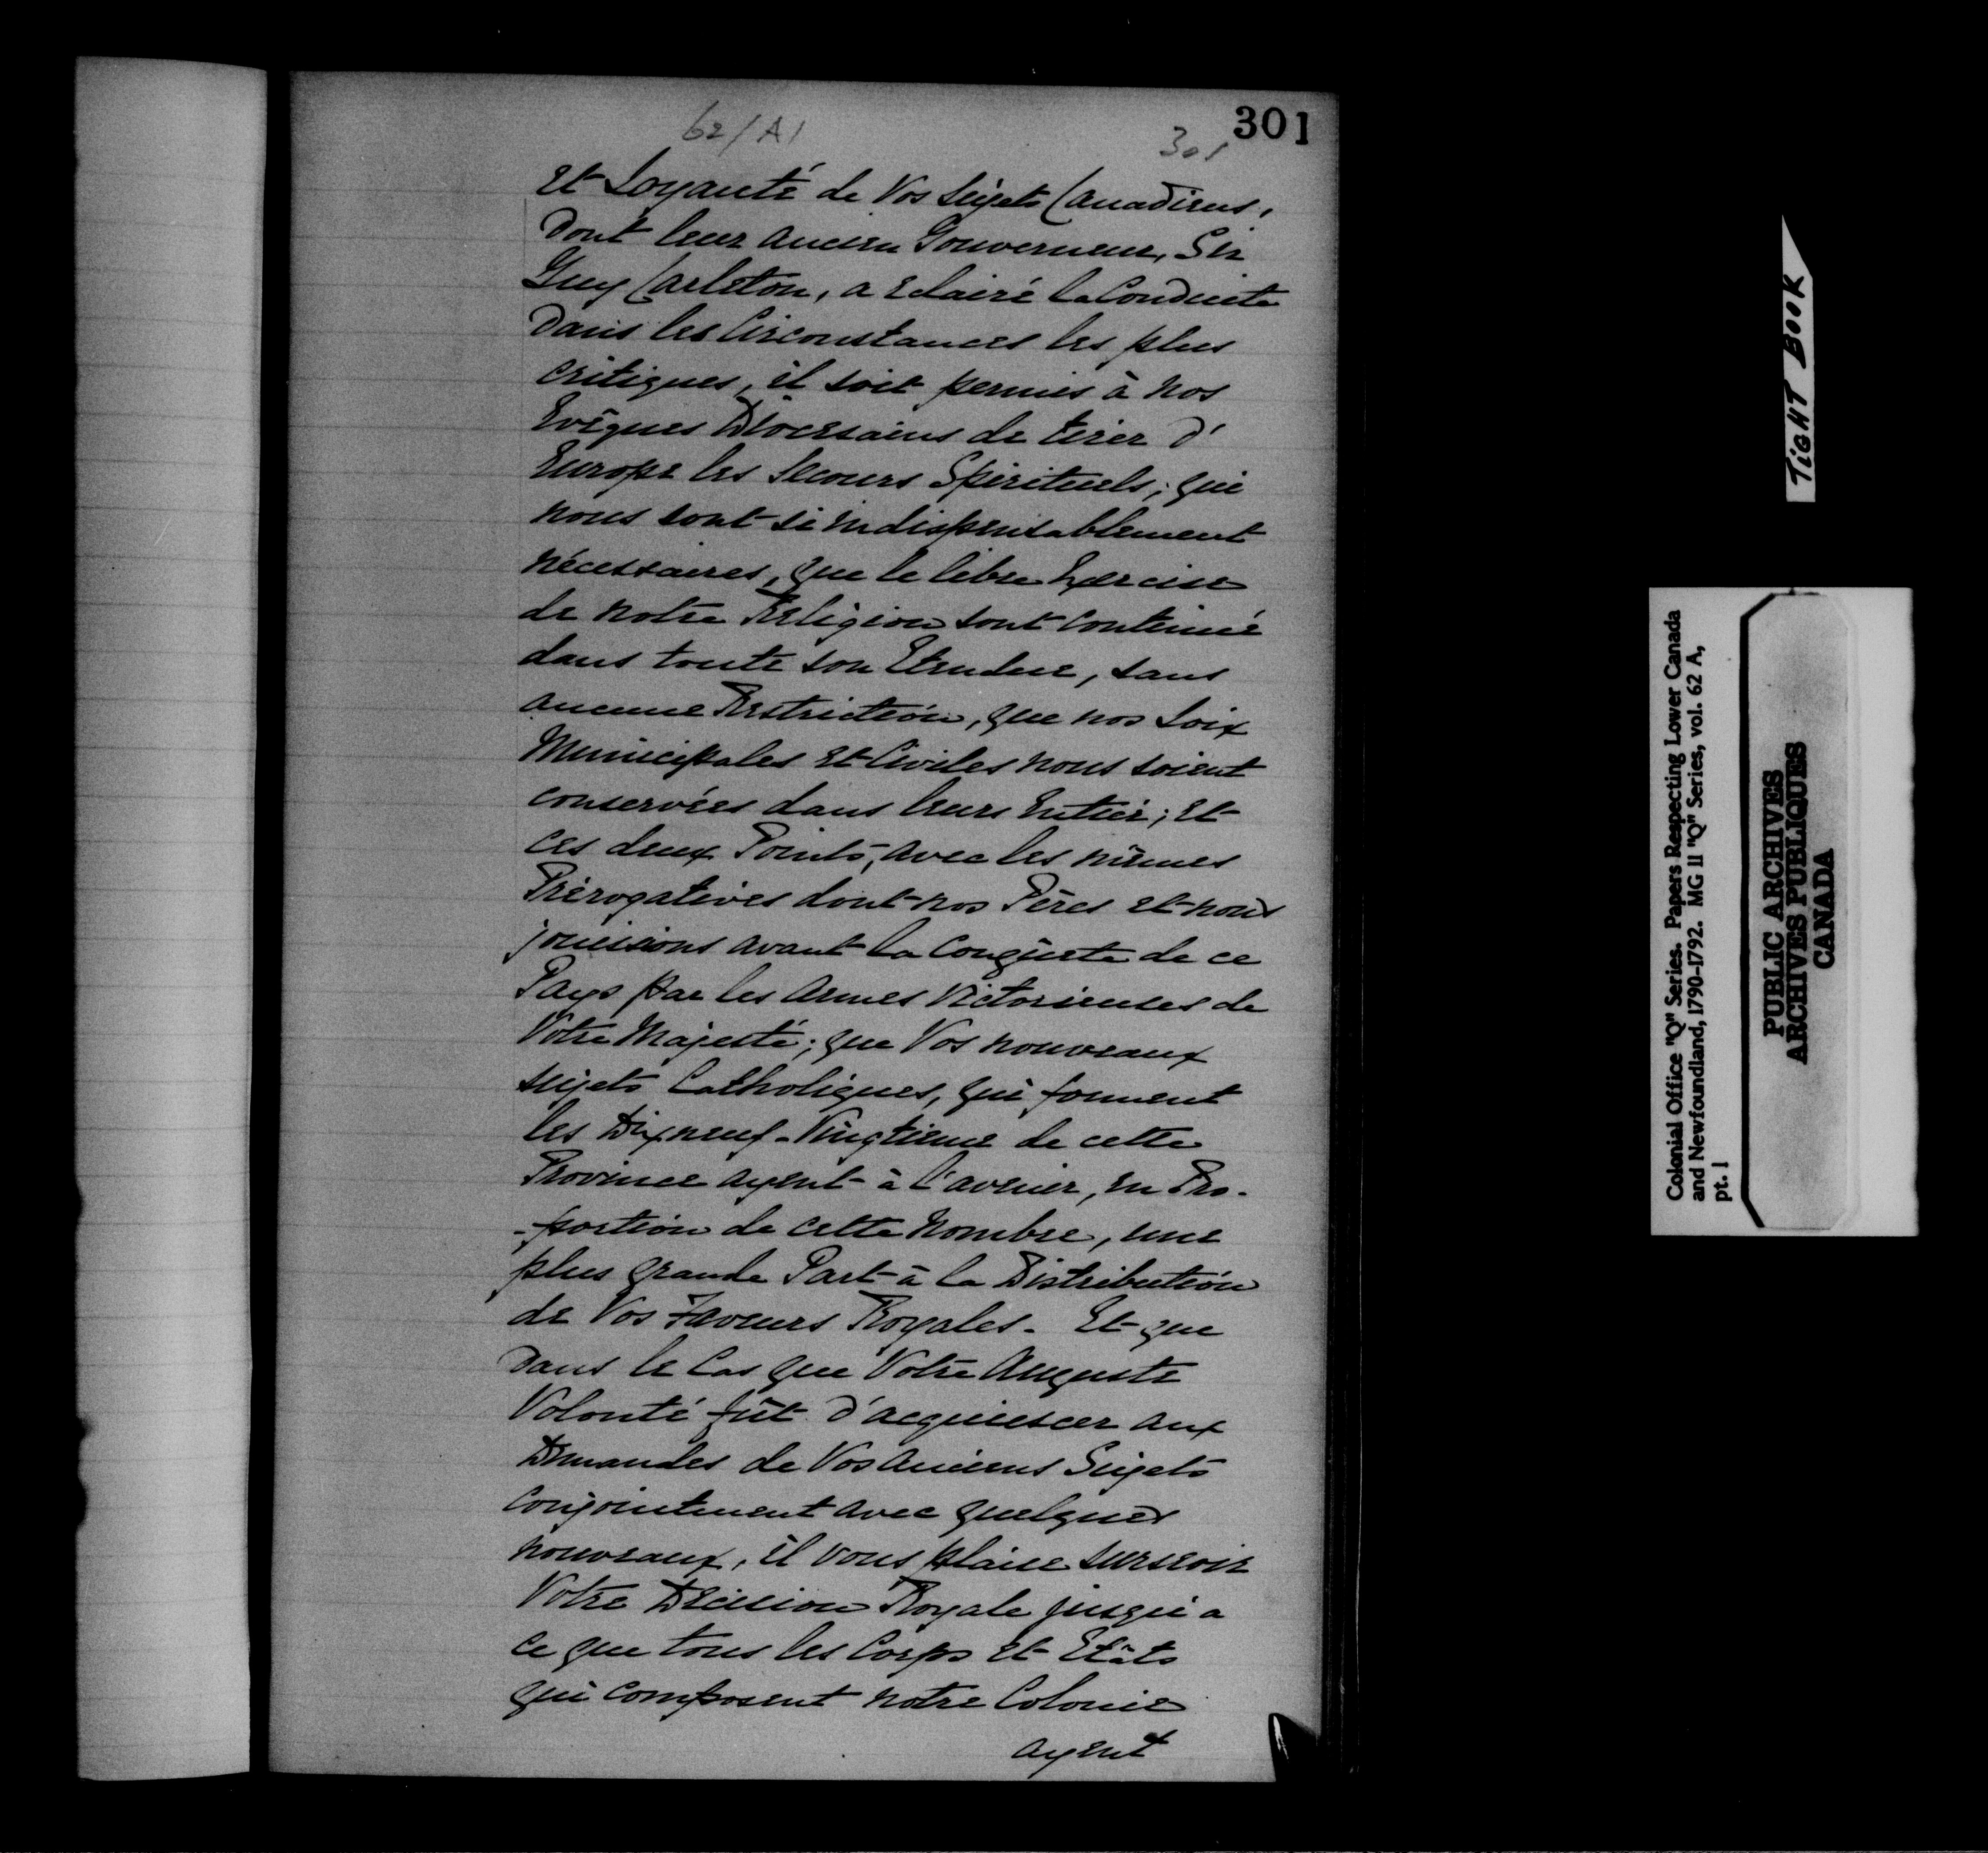 62/A1
301
301
et Loyauté de Vos Sujets Canadiens,
dont leur ancien Gouverneur, Sir
Guy Carleton, a eclairé la Conduite
dans les Circonstances les plus
critiques, il soit permis à nos
Evêques Diocesains de tirer d'
Europe les Secours Spirituels; qui
nous sont si indispensablement
nécessaires, que le libre Exercise
de notre Religion sont continué
dans toute son Etendue, sans
aucune Restriction, que nos Loix
Municipales et Civiles nous soient
conservées dans leurs Entier; et
ces deux Points, avec les mêmes
Prérogatives dont nos Pères et nous
jouissions avant la Conquête de ce
Pays par les Armes Victorieuses de
Votre Majesté; que Vos nouveaux
sujets Catholiques, qui forment
les Dixneuf-Vingtieme de cette
Province ayent à l'avenir, en Pro-
-portion de cette Nombre, une
plus grande Part à la Distribution
de Vos Faveurs Royales. Et que
dans le Cas que Votre Auguste
Volonté fût d'acquiescer aux
Demandes de Vos Anciens Sujets
conjointement avec quelques
nouveaux, il vous plaise surseoir
Votre Décision Royale jusqu'a
ce que tous les Corps et Etâts
qui composent notre Colonie
ayent
TIGHT BOOK
Colonial Office "Q" Series. Papers Respecting Lower Canada
and Newfoundland, 1790-1792. MG 11 "Q" Series, vol. 62 A,
pt. 1
PUBLIC ARCHIVES
ARCHIVES PUBLIQUES
CANADA